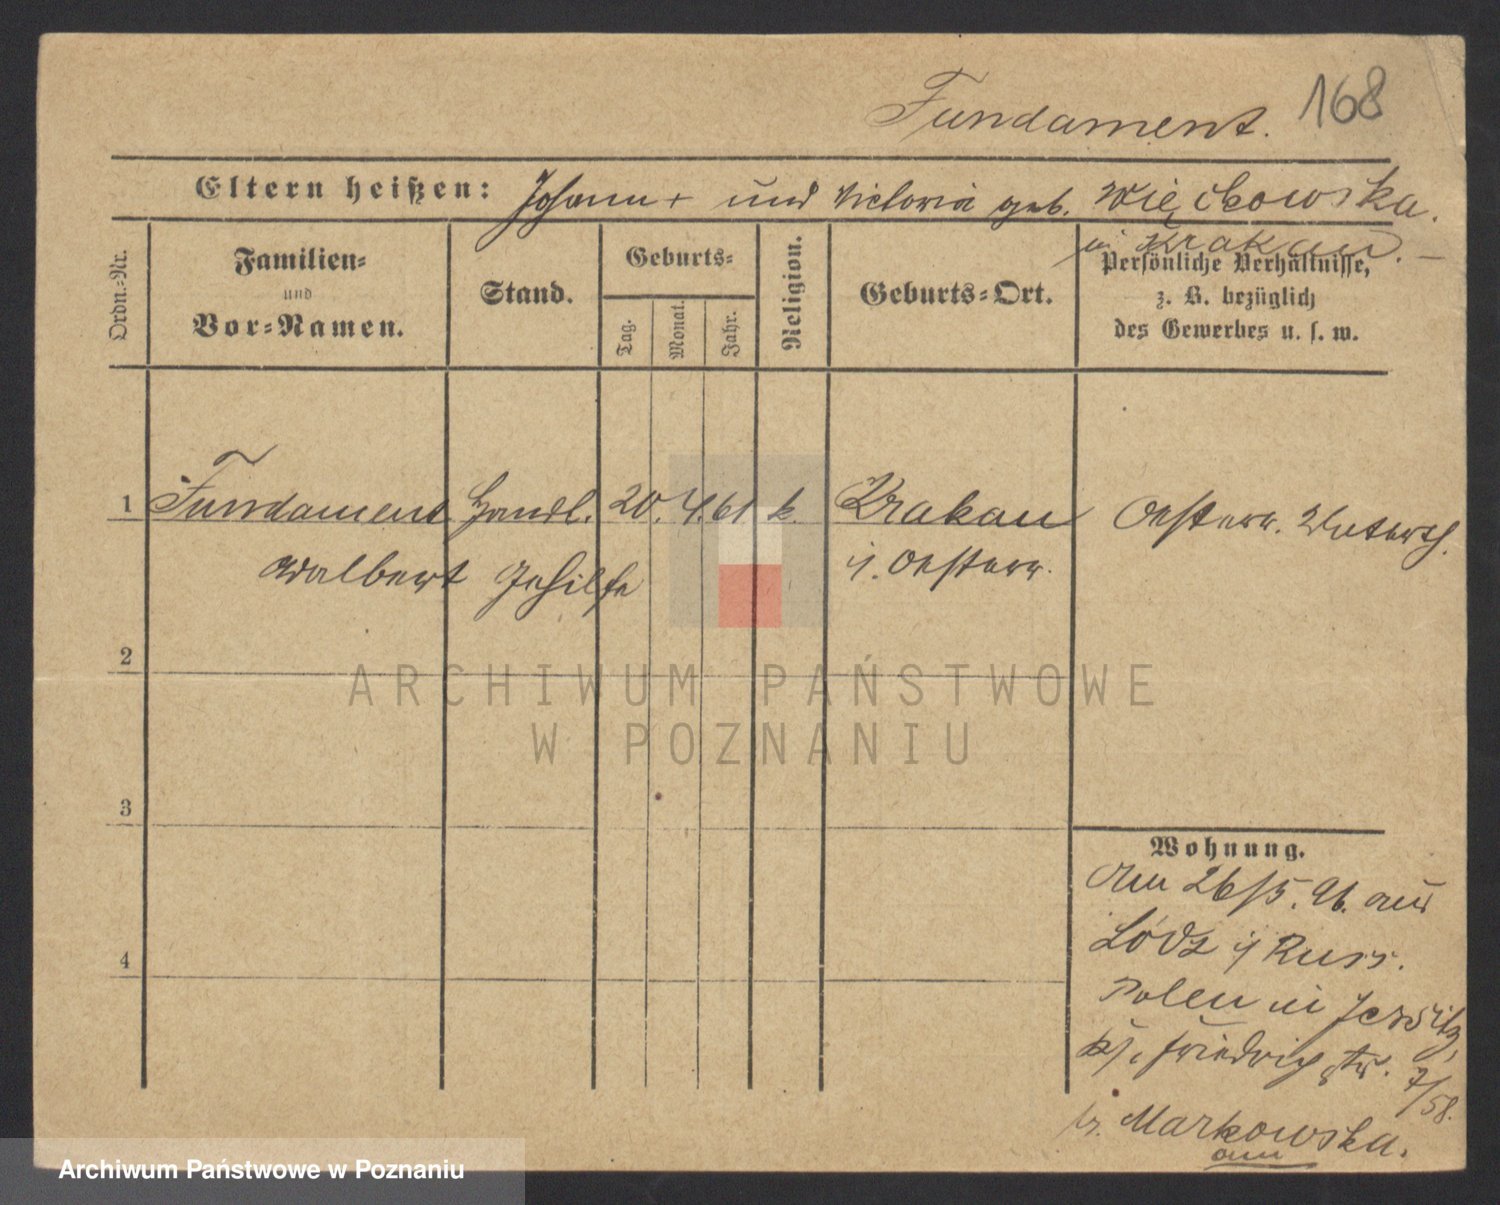 Fundament. 168
Eltern heißen: Johann + und Victoria geb. Więckowska.
in Krakau. —
Ordn.=Nr.
Familien=
und
Vor=Namen.
Stand.
Geburts=
Tag.
Monat.
Jahr.
Religion.
Geburts=Ort.
Persönliche Verhältnisse,
z. B. bezüglich
des Gewerbes u. s. w.
1 Fundament Handl. 20. 4. 61 k. Krakau Oesterr. Unterth.
Walbert Gehilfe i. Oesterr.
2
ARCHIWUM PAŃSTWOWE
W POZNANIU
3
Wohnung.
Am 26/5. 96. aus
Lódz i/ Russ.
4
Polen in Jersitz,
Friedrich str. 7/58.
Markowska.
Archiwum Państwowe w Poznaniu